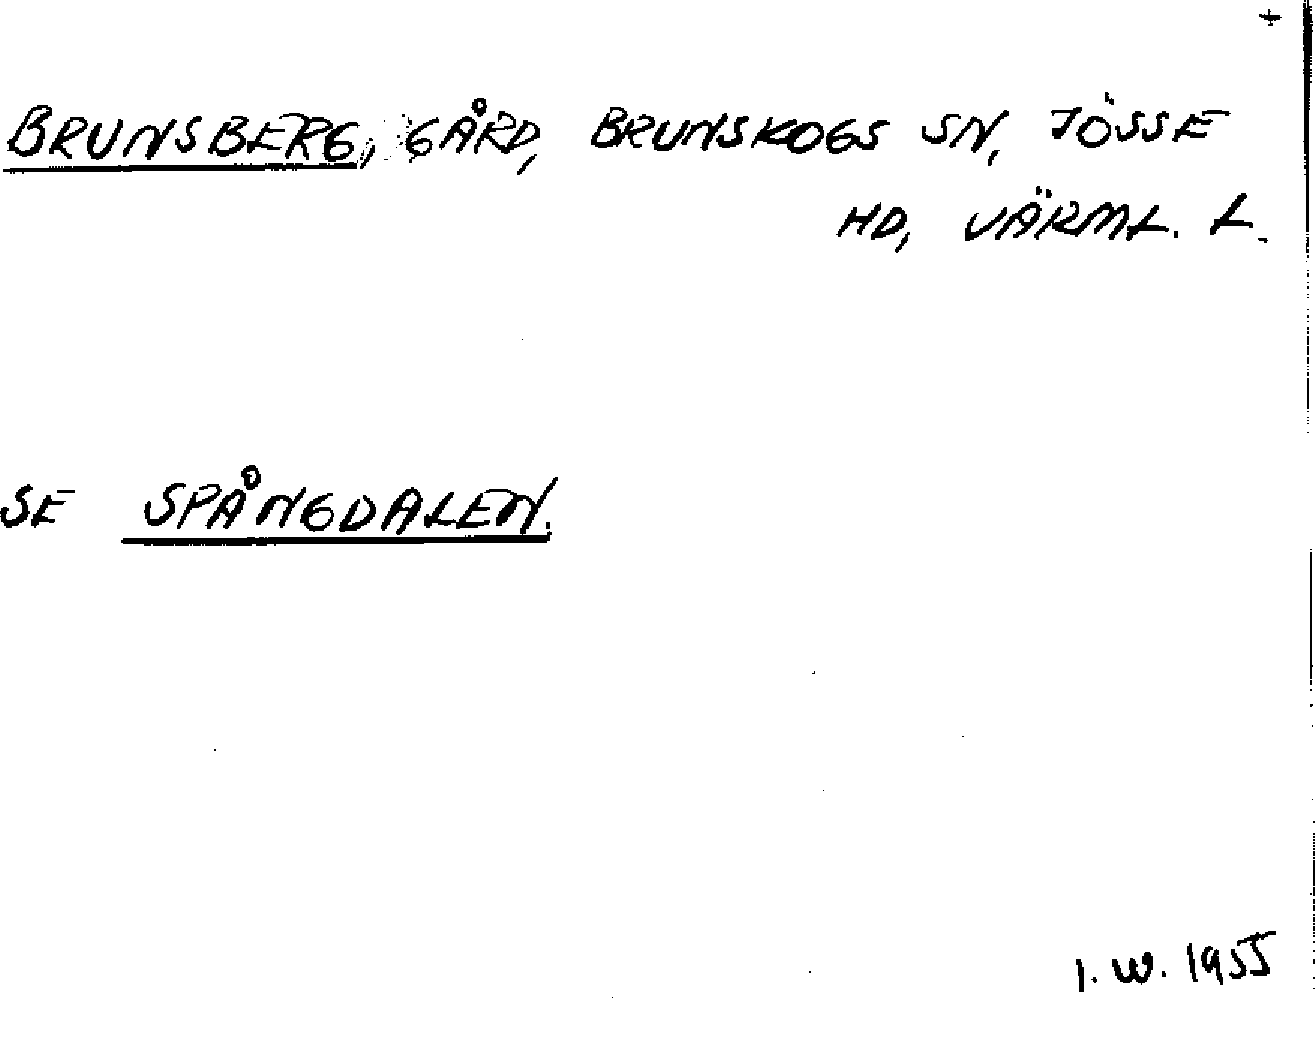 +
BRUNSBERG, GÅRD, BRUNSKOGS SN, JÖSSE
HD, VÄRML. L.
SE SPÅNGDALEN.
I. W. 1955